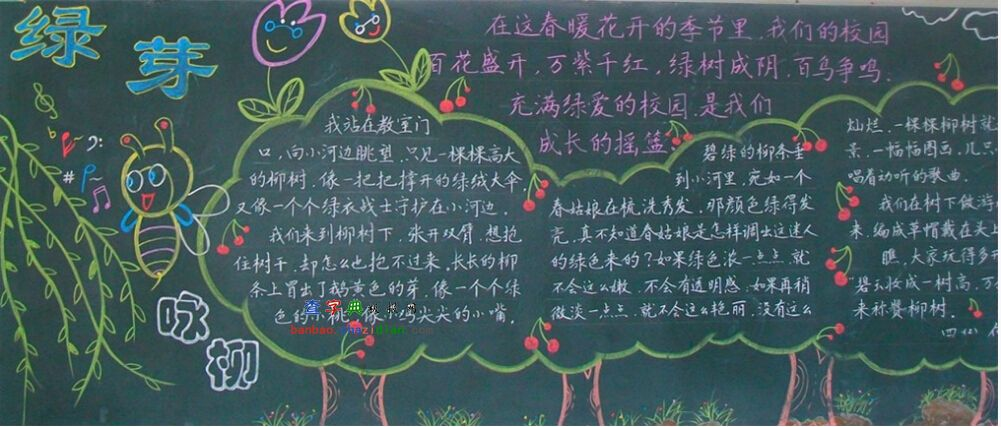 绿芽
在这春暖花开的季节里,我们的校园
百花盛开,万紫千红,绿树成阴,百鸟争鸣,
充满绿爱的校园,是我们
成长的摇篮
我站在教室门
口,向小河边眺望,只见一棵棵高大
的柳树,像一把把撑开的绿绒大伞,
又像一个个绿衣战士守护在小河边。
我们来到柳树下,张开双臂,想抱
住树干,却怎么也抱不过来,长长的柳
条上冒出了鹅黄色的芽,像一个个绿
色的小
尖尖的小嘴,
碧绿的柳条垂
到小河里,宛如一个
春姑娘在梳洗秀发,那颜色绿得发
亮,真不知道春姑娘是怎样调出这迷人
的绿色来的?如果绿色浓一点点,就
不会这么嫩,不会有透明感,如果再稍
微淡一点点,就不会这么艳丽,没有这么
灿烂,一棵棵柳树就
景,一幅幅图画,几只
唱着动听的歌曲。
我们在树下做游
来,编成草帽戴在头上
瞧,大家玩得多开
碧玉妆成一树高,万
来称赞柳树。
四(2)
咏柳
查字典
banbao.chazidian.com